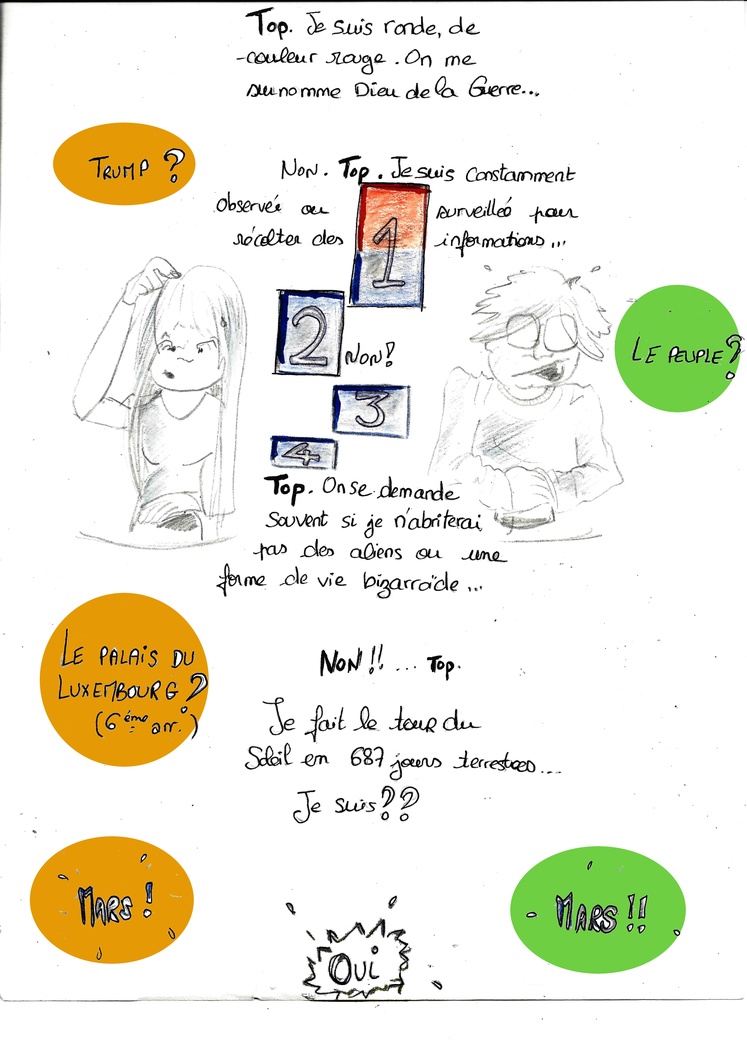 Top. Je suis ronde, de
couleur rouge. On me
surnomme Dieu de la Guerre...
TRUMP ?
Non. Top. Je suis constamment
observée ou surveillé pour
récolter des informations...
1
2
Non!
3
4
LE PEUPLE ?
Top. On se demande
souvent si je n'abriterai
pas des aliens ou une
forme de vie bizarroïde...
LE PALAIS DU
LUXEMBOURG ?
(6ème arr.)
NON !! ... Top.
Je fait le tour du
Soleil en 687 jours terrestres...
Je suis ??
MARS !
MARS !!
OUI